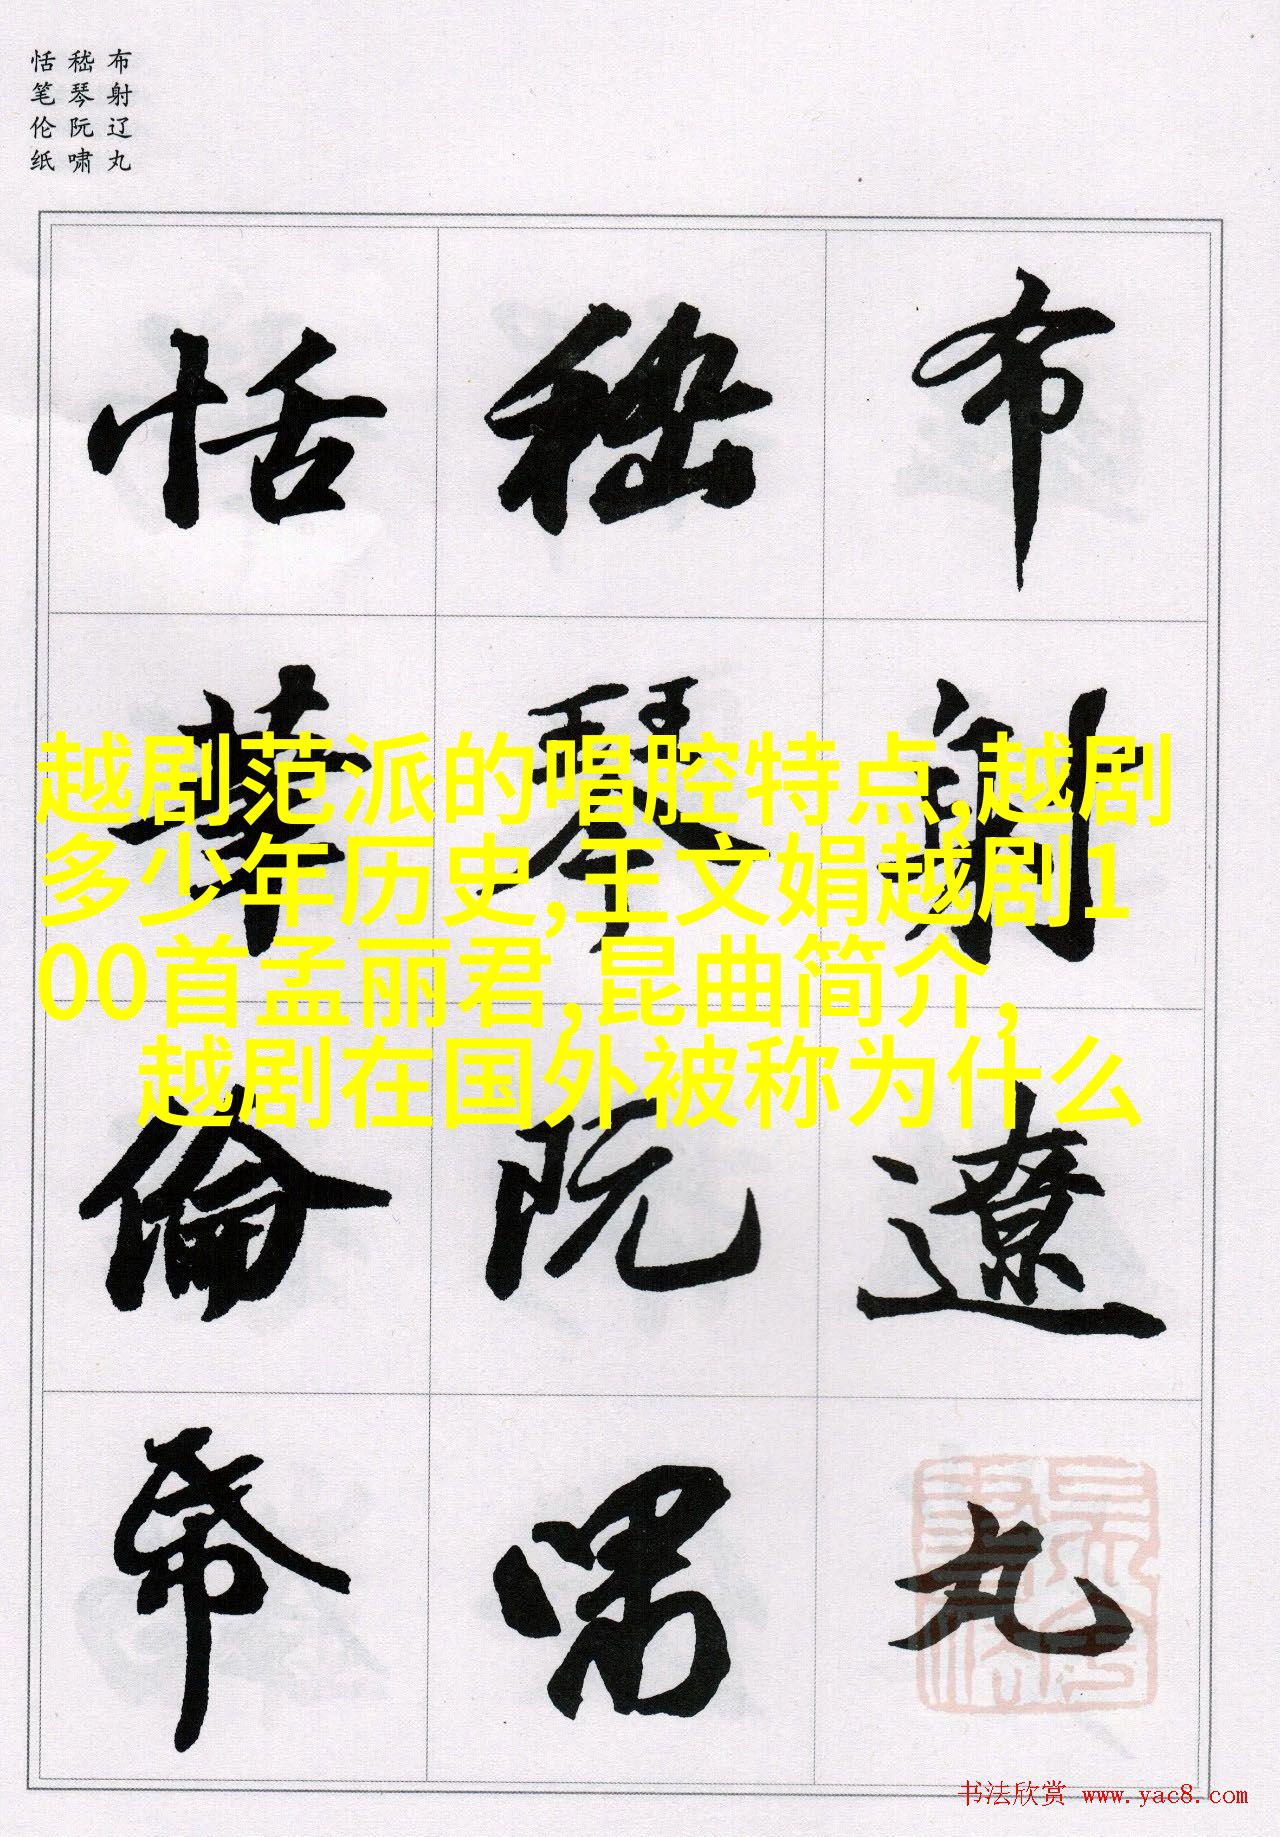 布射辽丸
嵇琴阮啸
恬笔伦纸
布射遼丸
嵇琴阮嘯
恬筆倫帋
越剧范派的唱腔特点,越剧
多少年历史,王文娟越剧1
00首孟丽君,昆曲简介,
越剧在国外被称为什么
书法欣赏 www.yac8.com